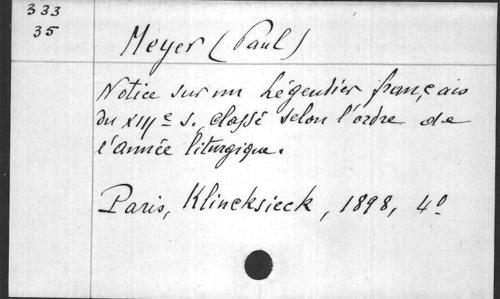 333
35
Meyer (Paul)
Notice sur un Légendier français
du XIIIe s. classé selon l'ordre de
l'année liturgique.
Paris, Klincksieck, 1898, 4o